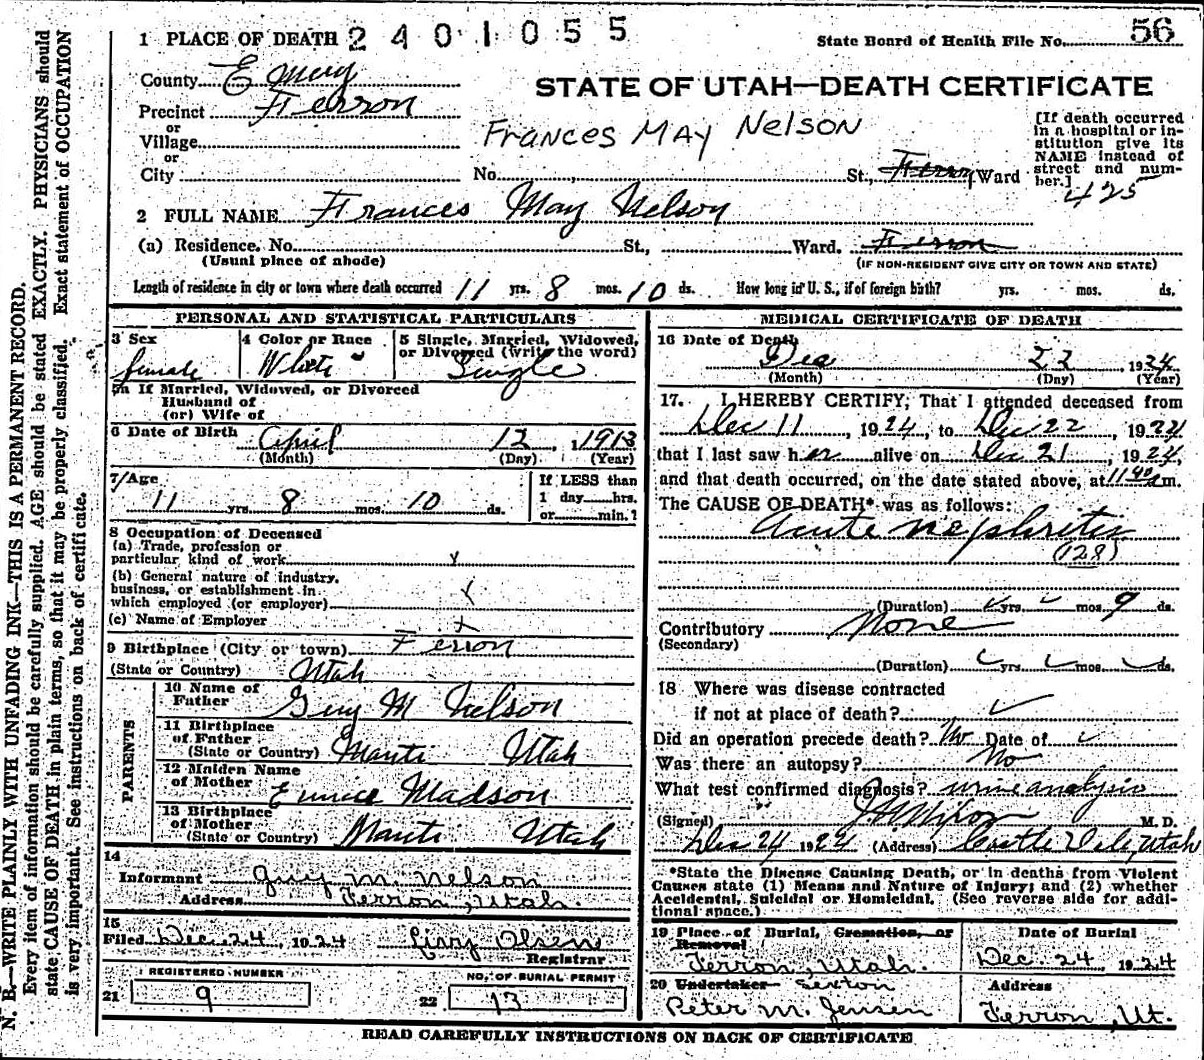 N. B.—WRITE PLAINLY WITH UNFADING INK—THIS IS A PERMANENT RECORD.
Every item of information should be carefully supplied. AGE should be stated EXACTLY. PHYSICIANS should
state CAUSE OF DEATH in plain terms, so that it may be properly classified. Exact statement of OCCUPATION
is very important. See instructions on back of certificate.
1 PLACE OF DEATH 2401055
State Board of Health File No. 56
County Emery
STATE OF UTAH—DEATH CERTIFICATE
Precinct Ferron
or
Village
Frances May Nelson
[If death occurred
in a hospital or in-
stitution give its
NAME instead of
street and num-
ber.]
or
City No. St., Ferron Ward
425
2 FULL NAME Frances May Nelson
(a) Residence. No. St., Ward. Ferron
(Usual place of abode) (IF NON-RESIDENT GIVE CITY OR TOWN AND STATE)
Length of residence in city or town where death occurred 11 yrs. 8 mos. 10 ds. How long in U. S., if of foreign birth? yrs. mos. ds.
PERSONAL AND STATISTICAL PARTICULARS
3 Sex 4 Color or Race 5 Single, Married, Widowed,
or Divorced (write the word)
female White Single
5a If Married, Widowed, or Divorced
Husband of
(or) Wife of
6 Date of Birth April 12, 1913
(Month) (Day) (Year)
7 Age If LESS than
11 yrs. 8 mos. 10 ds. 1 day hrs.
or min.?
8 Occupation of Deceased
(a) Trade, profession or
particular kind of work
(b) General nature of industry,
business, or establishment in
which employed (or employer)
(c) Name of Employer
9 Birthplace (City or town) Ferron
(State or Country) Utah
PARENTS
10 Name of
Father Guy M Nelson
11 Birthplace
of Father
(State or Country) Manti Utah
12 Maiden Name
of Mother Eunice Madson
13 Birthplace
of Mother
(State or Country) Manti Utah
14
Informant Guy M. Nelson
Address Ferron, Utah.
15
Filed Dec. 24, 1924 Lizzy Olsen
Registrar
REGISTERED NUMBER NO. OF BURIAL PERMIT
21 9 22 13
MEDICAL CERTIFICATE OF DEATH
16 Date of Death
Dec 22, 1924
(Month) (Day) (Year)
17. I HEREBY CERTIFY, That I attended deceased from
Dec 11, 1924, to Dec 22, 1924
that I last saw her alive on Dec 21, 1924,
and that death occurred, on the date stated above, at 11 40 a m.
The CAUSE OF DEATH* was as follows:
Acute nephritis
(128)
(Duration) yrs. mos. 9 ds.
Contributory None
(Secondary)
(Duration) yrs. mos. ds.
18 Where was disease contracted
if not at place of death?
Did an operation precede death? No Date of
Was there an autopsy? No
What test confirmed diagnosis? urine analysis
(Signed) M. D.
Dec 24 1924 (Address) Castle Dale, Utah
*State the Disease Causing Death, or in deaths from Violent
Causes state (1) Means and Nature of Injury; and (2) whether
Accidental, Suicidal or Homicidal. (See reverse side for addi-
tional space.)
19 Place of Burial, Cremation, or
Removal Date of Burial
Ferron, Utah. Dec. 24, 1924
20 Undertaker Sexton Address
Peter M. Jensen Ferron, Ut.
READ CAREFULLY INSTRUCTIONS ON BACK OF CERTIFICATE